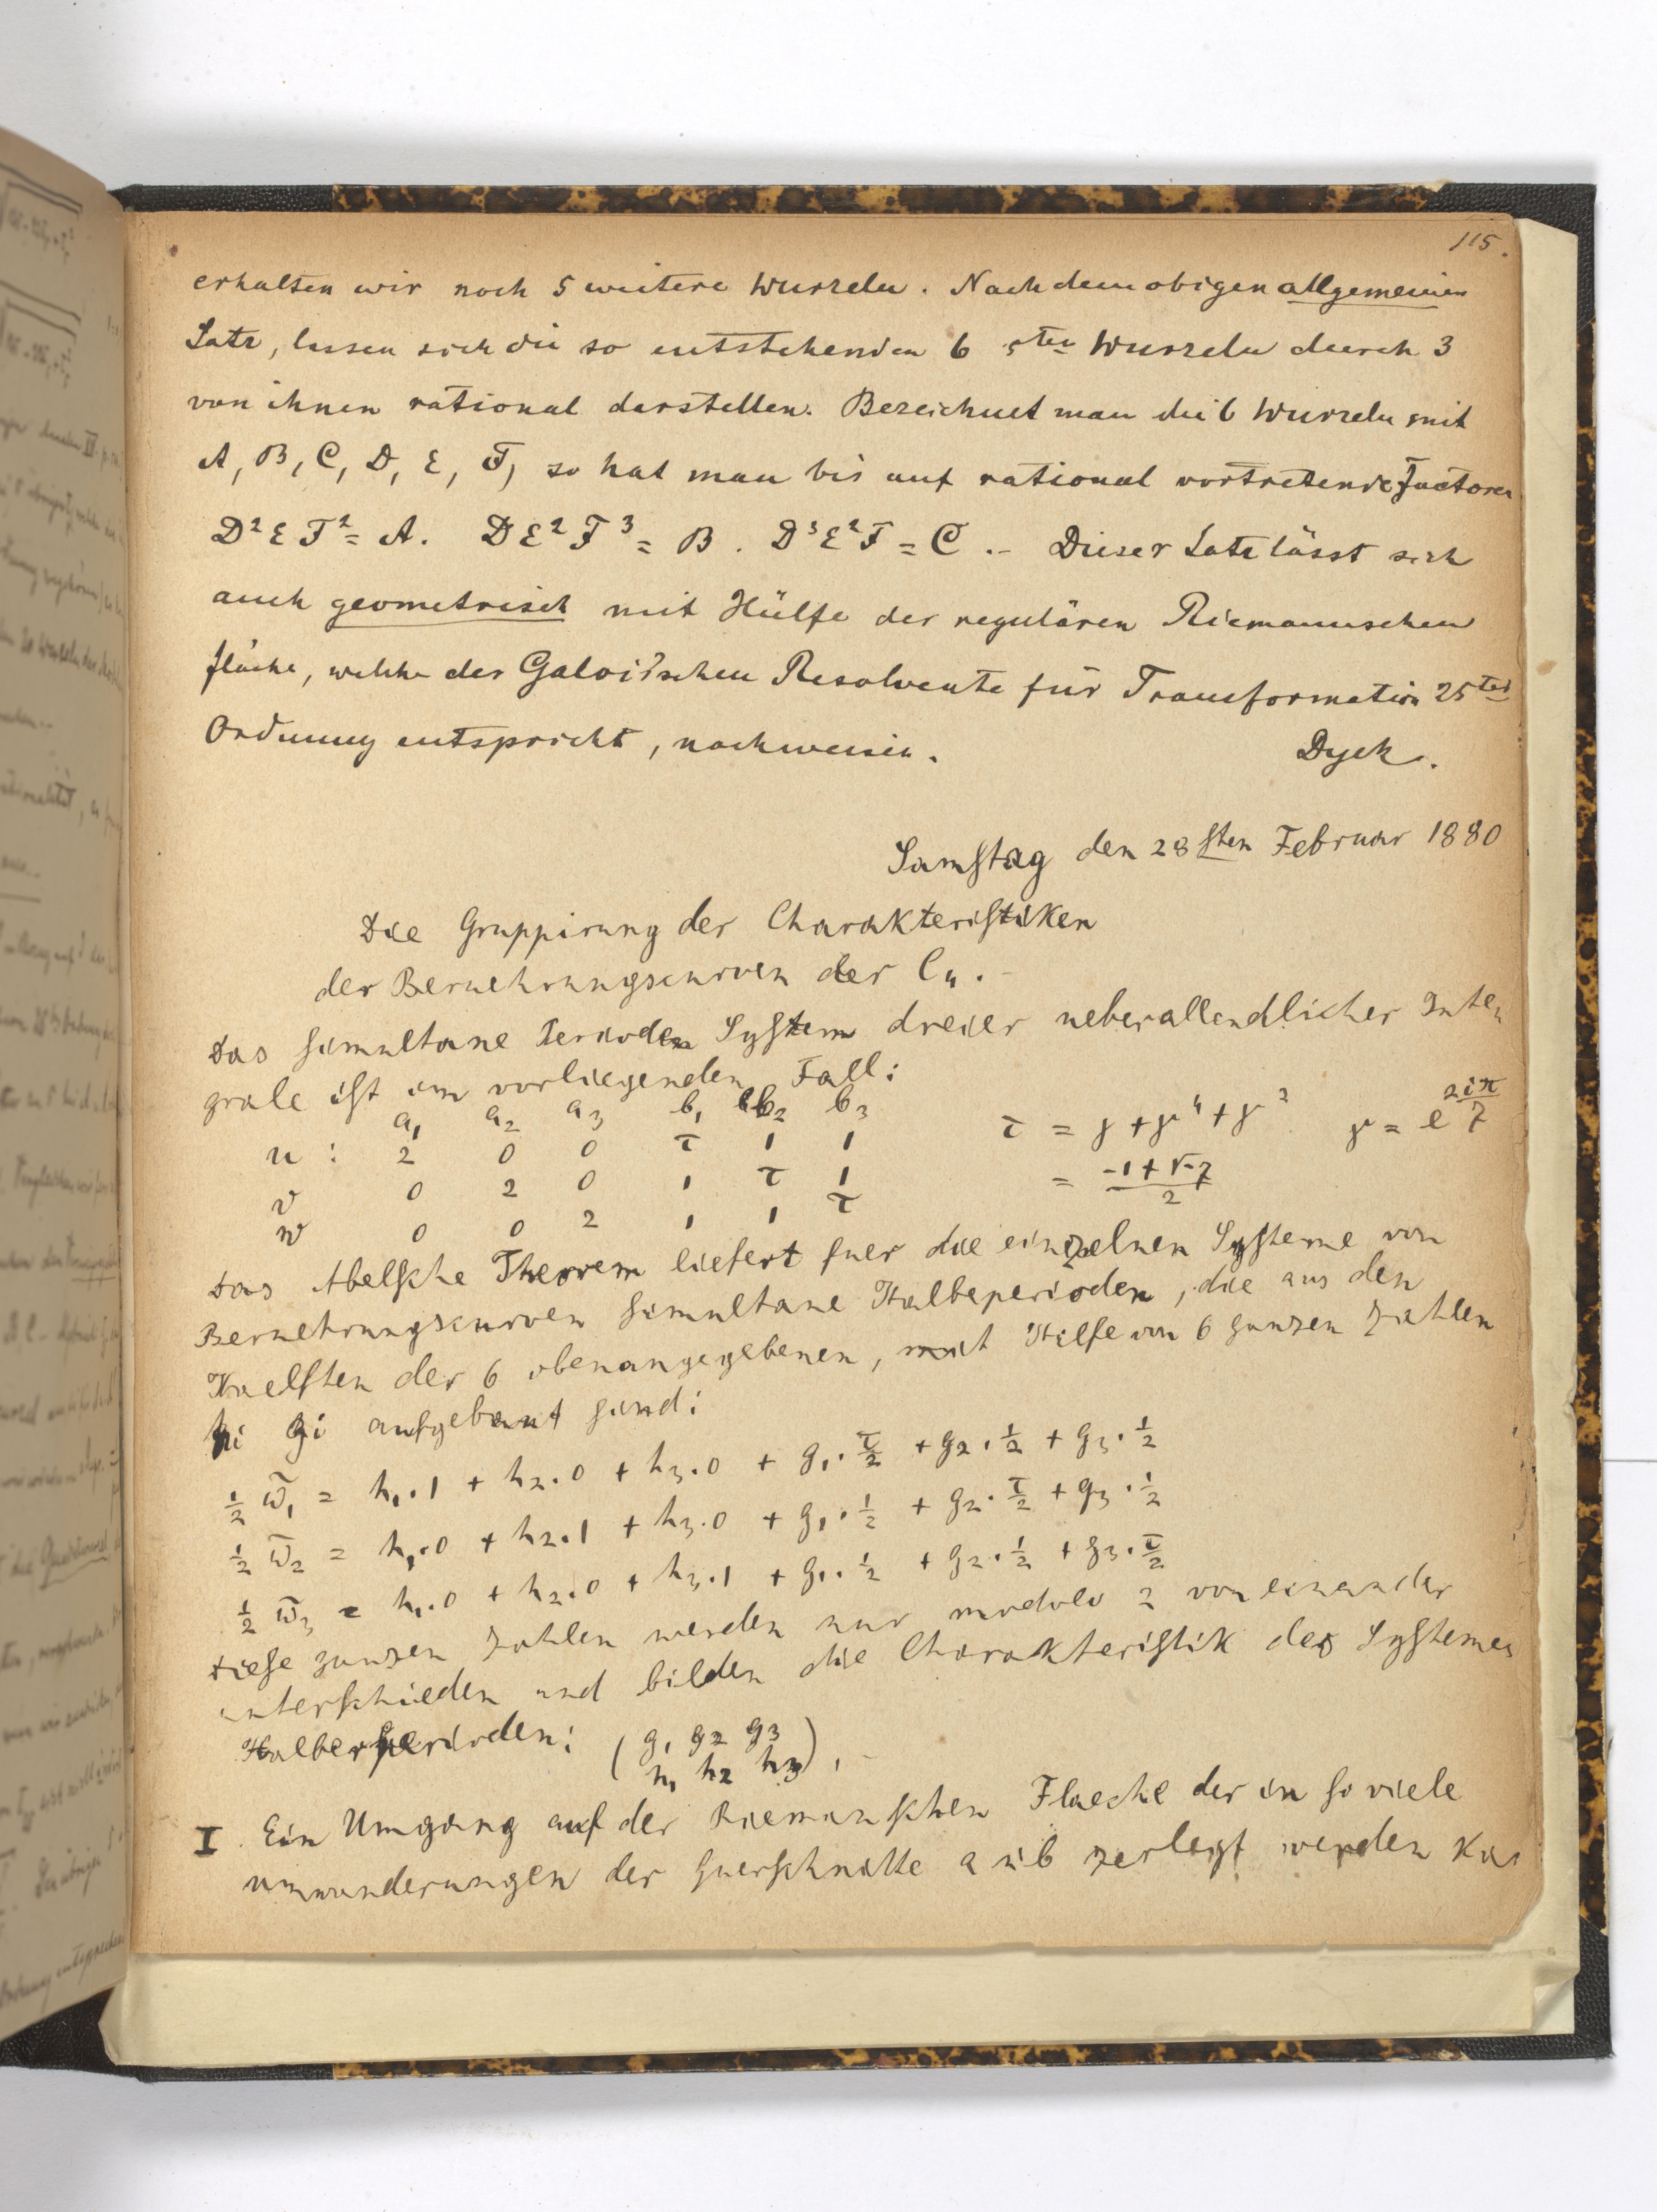 115.
erhalten wir noch 5 weitere Wurzeln. Nach dem obigen allgemeinen
Satz, lassen sich die so entstehenden 6 5ten Wurzeln durch 3
von ihnen rational darstellen. Bezeichnet man die 6 Wurzeln mit
A, B, C, D, E, F, so hat man bis auf rational vortretende Factoren
D²EF² = A. DE²F³ = B. D³E²F = C.– Dieser Satz lässt sich
auch geometrisch mit Hülfe der regulären Riemannschen
Fläche, welche der Galois'schen Resolvente für Transformation 25ter
Ordnung entspricht, nachweisen.
Dyck.
Samstag den 28sten Februar 1880
Die Gruppirung der Charakteristiken
der Beruehrungscurven der C4.–
Das simultane Perioden System dreier ueberallendlicher Inte
grale ist im vorliegenden Fall:
a1 a2 a3 b1 b2 b3
u : 2 0 0 τ 1 1 τ = γ + γ⁴ + γ² γ = e^(2iπ/7)
v 0 2 0 1 τ 1 = (-1+√-7)/2
w 0 0 2 1 1 τ
Das Abelsche Theorem liefert fuer die einzelnen Systeme von
Beruehrungscurven simultane Halbeperioden, die aus den
Haelften der 6 obenangegebenen, mit Hilfe von 6 ganzen Zahlen
hi gi aufgebaut sind:
½ ω̃1 = h1.1 + h2.0 + h3.0 + g1.τ/2 + g2.½ + g3.½
½ ω̃2 = h1.0 + h2.1 + h3.0 + g1.½ + g2.τ/2 + g3.½
½ ω̃3 = h1.0 + h2.0 + h3.1 + g1.½ + g2.½ + g3.τ/2
Diese ganzen Zahlen werden nur modulo 2 von einander
unterschieden und bilden die Charakteristik des Systemes
Halberperioden: (g1 g2 g3
h1 h2 h3).–
I. Ein Umgang auf der Riemanschen Flaeche der in so viele
umwanderungen der Querschnitte a u b zerlegt werden kan